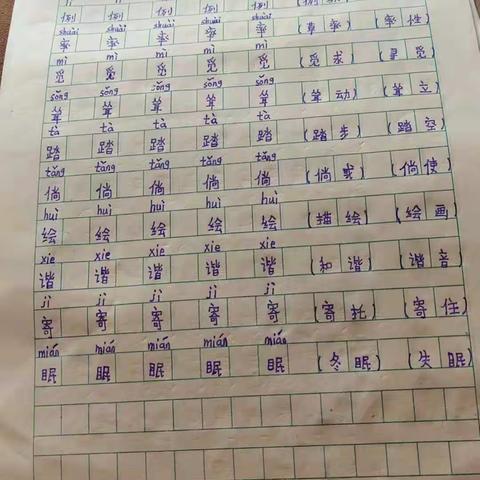 例 例 例 例 例
shuài shuài shuài shuài shuài
率 率 率 率 率 (草率) (率性)
mì mì mì mì mì
觅 觅 觅 觅 觅 (觅求) (寻觅)
sǒng sǒng sǒng sǒng sǒng
耸 耸 耸 耸 耸 (耸动) (耸立)
tà tà tà tà tà
踏 踏 踏 踏 踏 (踏步) (踏空)
tǎng tǎng tǎng tǎng tǎng
倘 倘 倘 倘 倘 (倘或) (倘使)
huì huì huì huì huì
绘 绘 绘 绘 绘 (描绘) (绘画)
xie xie xie xie xie
谐 谐 谐 谐 谐 (和谐) (谐音)
jì jì jì jì jì
寄 寄 寄 寄 寄 (寄托) (寄任)
mián mián mián mián mián
眠 眠 眠 眠 眠 (冬眠) (失眠)